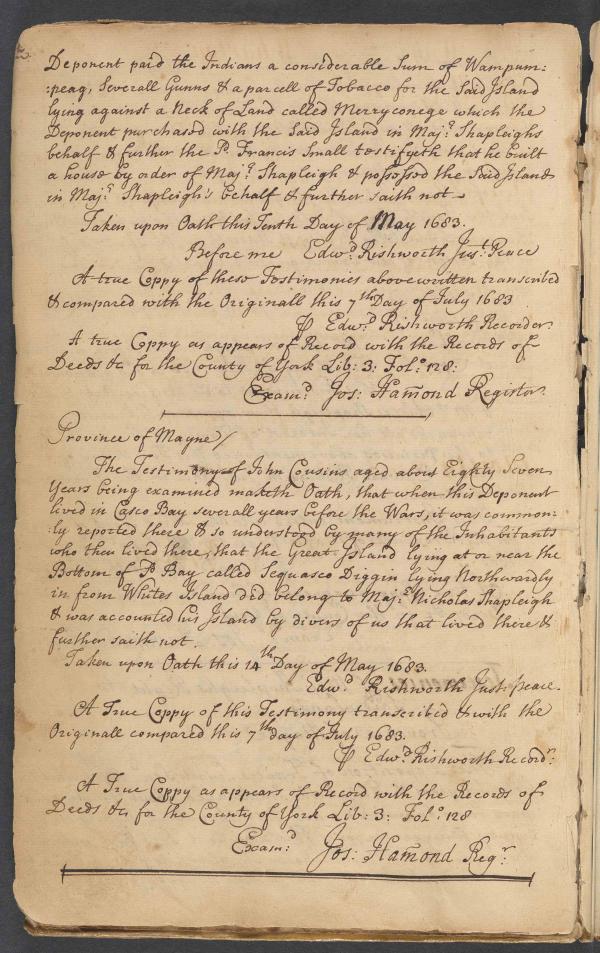 Deponent paid the Indians a considerable Sum of Wampum:
:peag, Severall Gunns & a parcell of Tobacco for the Said Island
lying against a Neck of Land called Merryconege which the
Deponent purchased with the Said Island in Maj.r Shapleighs
behalf & further the sd. Francis Small testifyeth that he built
a house by order of Maj.r Shapleigh & possessed the Said Island
in Maj.r Shapleigh's behalf & further saith not
Taken upon Oath this Tenth Day of May 1683.
Before me Edw.d Rishworth Jus.t Peace
A true Coppy of these Testimonies above written transcribed
& compared with the Originall this 7th Day of July 1683
⅌ Edw.d Rishworth Recorder.
A true Coppy as appears of Record with the Records of
Deeds &c for the County of York Lib: 3: Fol.o 128:
Exam.d Jos: Ham̄ond Register.
Province of Mayne/
The Testimony of John Cousins aged about Eighty Seven
Years being examined maketh Oath, that when this Deponent
lived in Casco Bay severall years before the Wars, it was common-
:ly reported there & so understood by many of the Inhabitants
who then lived there, that the Great Island lying at or near the
Bottom of sd Bay called Sequasco Diggin lying Northwardly
in from Whites Island did belong to Maj.r Nicholas Shapleigh
& was accounted his Island by divers of us that lived there &
further saith not.
Taken upon Oath this 14th Day of May 1683.
Edw.d Rishworth Just: peace.
A True Coppy of this Testimony transcribed & with the
Originall compared this 7th day of July 1683.
⅌ Edw.d Rishworth Record.r
A True Coppy as appears of Record with the Records of
Deeds &c for the County of York Lib: 3: Fol.o 128
Exam.d Jos: Ham̄ond Reg.r